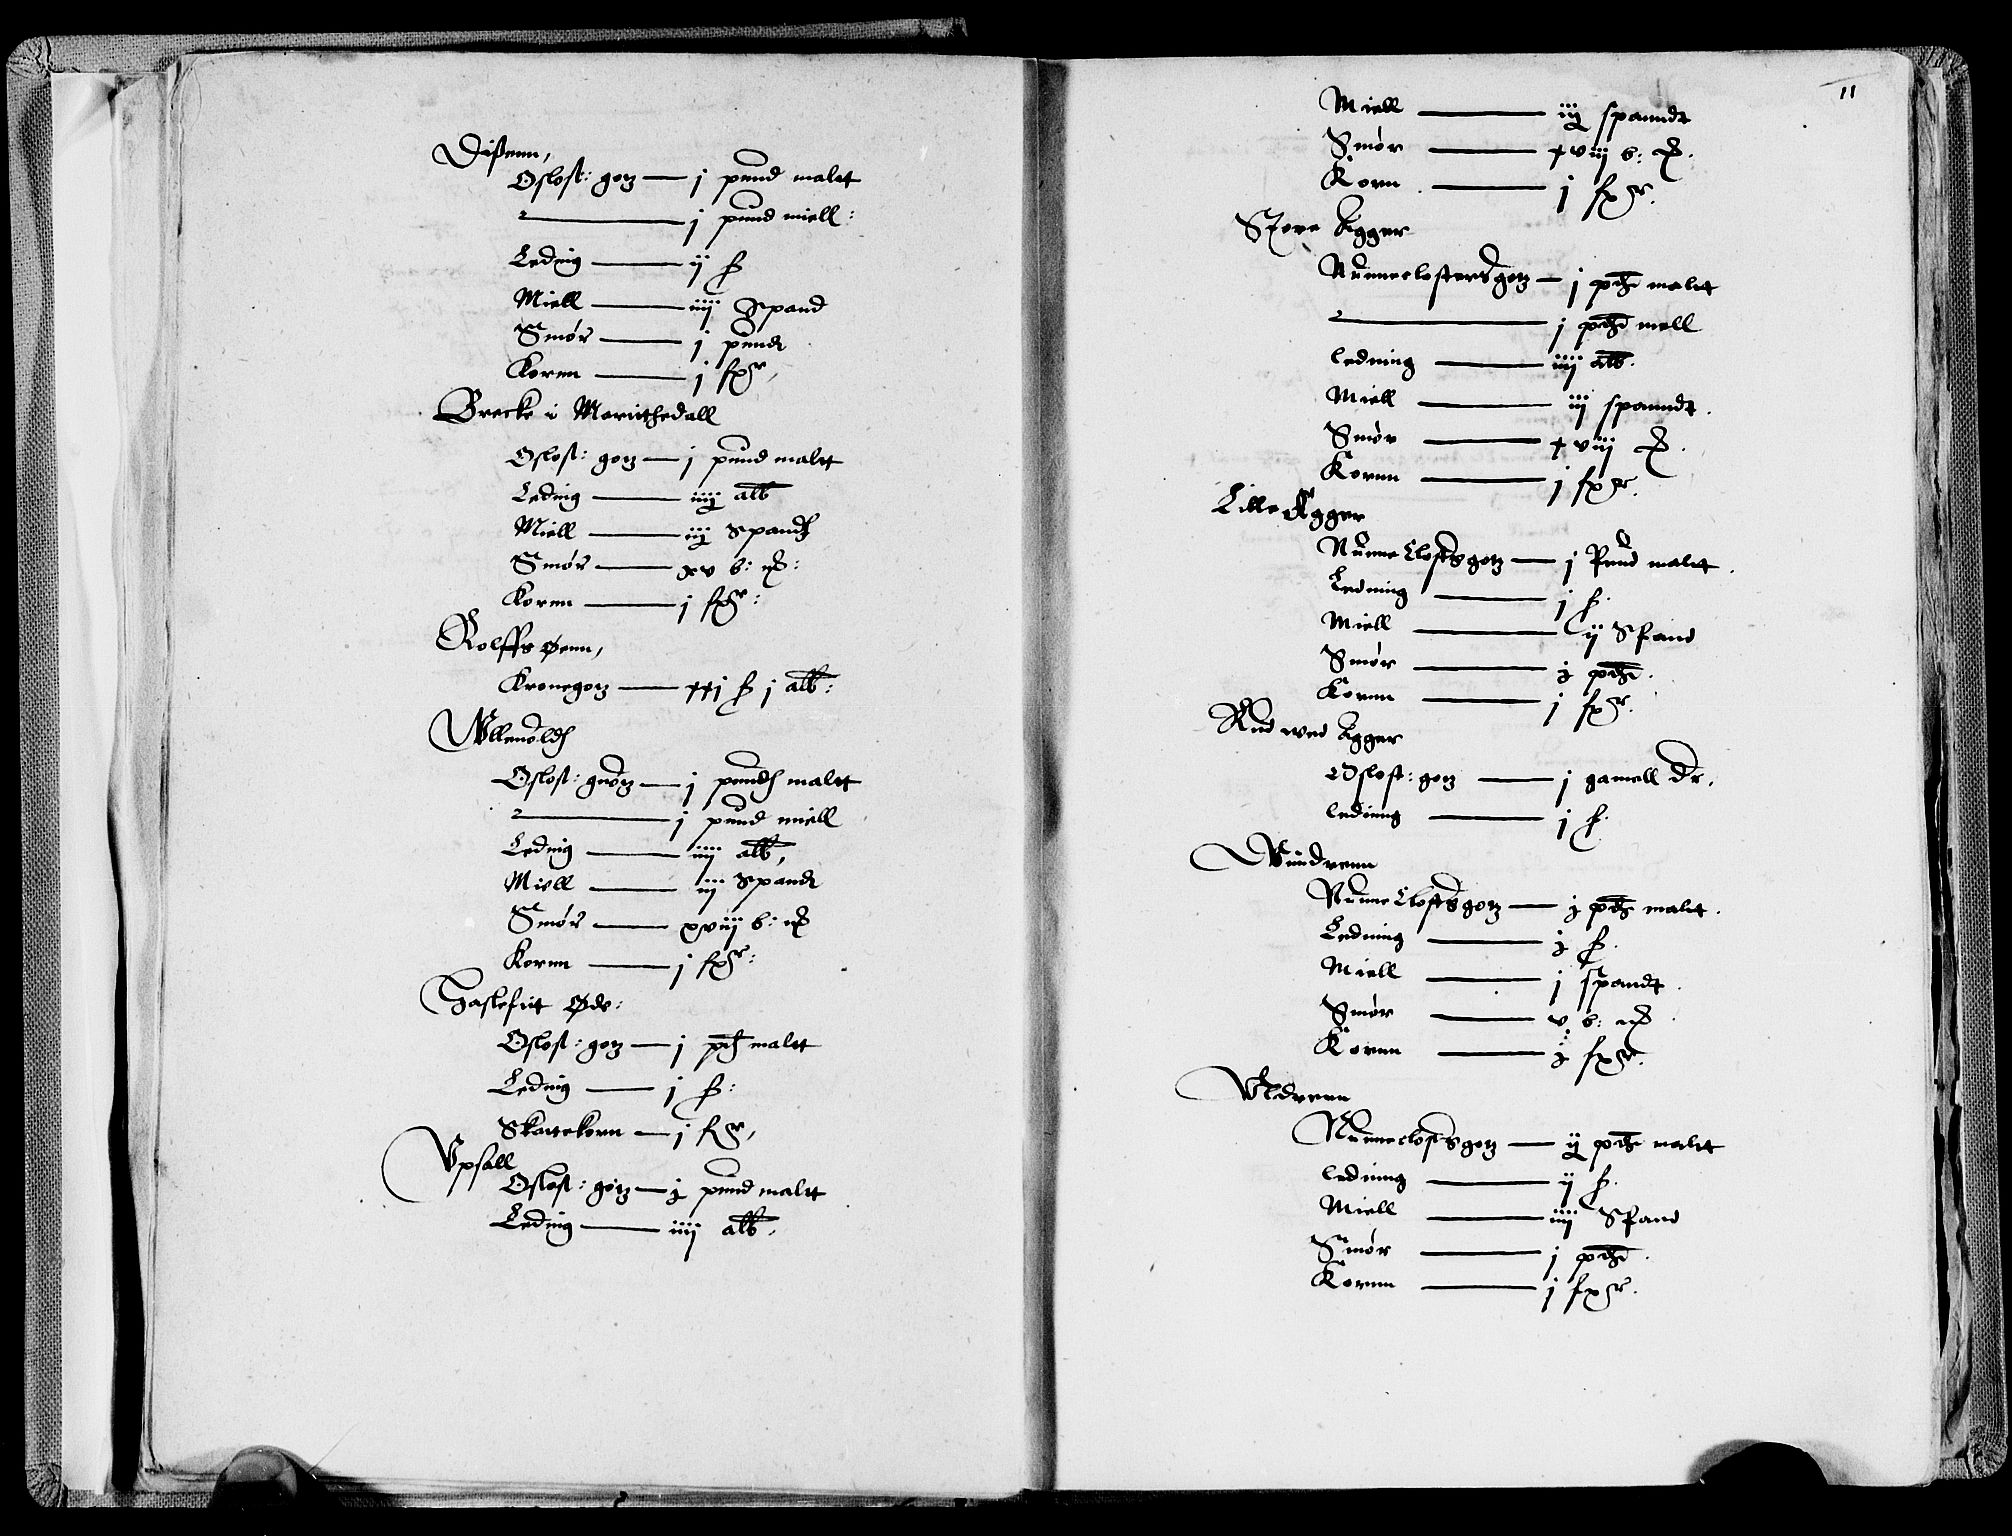 Dißenn,
Oslost: gotz — j pund maltt
— j pund miell:
Leding — ij ß
Miell — iiij Spand
Smør — j pundt
Koren — j fxgr,
Brecke i Mariithedall
Oslost: gotz — j pund maltt
Leding — iiij alb
Miell — iij Spandt
Smør — xv b: m
Koren — j fxgr:
Rolffs øenn,
Kronegotz — xxj ß j alb:
Wlleuoldt
Oslost: guotz — j pundt maltt
— j pund miell
Leding — iiij alb,
Miell — iij Spandt
Smør — xviij b: m
Koren — j fxgr:
Haslefiit Øde:
Oslost: gotz — j pd maltt
Leding — j ß:
Skattekorn — j fxgr,
Vpsall
Oslost: gotz — j pund maltt
Leding — iiij alb.
11
Miell — iij spanndt
Smør — xviij b:
Korn — j fxgr.
Store Agger
Nunneclostersgotz — j pd maltt
— j pd mell
ledning — iiij alb.
Miell — iij spanndt.
Smør — xviij
Kornn — j fxgr.
Lille Agger
Nunne Clostsgotz — j Pund maltt.
Ledning — j ß.
Miell — ij Spand
Smør — j pd.
Kornn — j fxgr.
Rud wed Agger
Oslost: gotz — j gamell dr.
lediung — j ß.
Wundrenn
Nunne Clostsgotz — j pd maltt.
Ledning — j ß.
Miell — j spandt.
Smør — v b: m
Kornn — j fxgr.
Vldrenn
Nunneclostsgotz — ij pd maltt
ledning — ij ß.
Miell — iiij Spand
Smør — j pd.
Kornn — j fxgr.